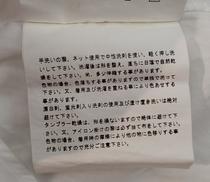 手洗いの際、ネット使用で中性洗剤を使い、軽く押し洗
いして下さい。洗濯後は形を整え、直ちに日陰で自然乾
燥して下さい。尚、多少
色物の場合、色落ちする事がありますので単独で
下さい。又、着用及び洗濯を重ねる事により色あせする
事があります。
漂白剤、蛍光剤入り洗剤の使用及び漬け置き洗いは絶対
避けて下さい。
タンブラー乾燥は、形を損ないますので絶体に避けて下
さい。又、アイロン掛けの際は必ず当て布をして下さい。
色物の場合、着用時の摩擦により他の物に色移りする事
がありますので充分ご注意下さい。